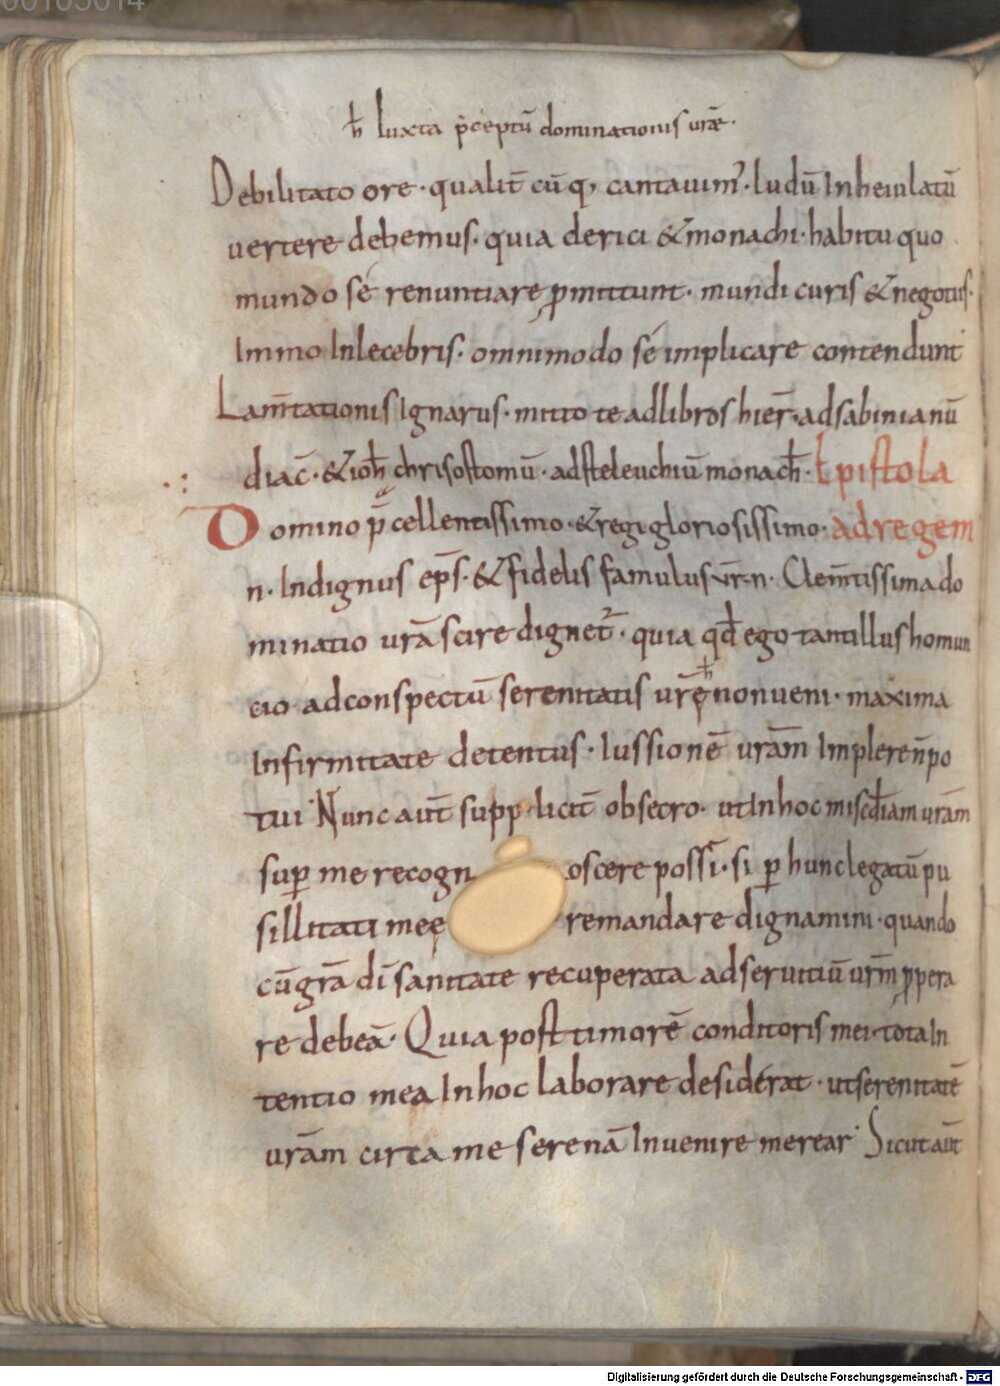 00105014
h̄ Iuxta p̄ceptū dominationis urāe.
Debilitato ore · qualit̄ cūq, cantauim᾽ · ludū Inheiulatū
uertere debemus · quia clerici & monachi · habitu quo
mundo sé renuntiare ꝓmittunt · mundi curis & negotiis ·
Immo Inlecebris · omnimodo sé implicare contendunt
Lam̄tationis Ignarus · mitto te adlibros hier̄ · adsabinianū
diac̄ · & ioh̄ chrisostomū · adsteleuchiū monach̄ · Epistola
Domino p̄cellentissimo · & regi gloriosissimo · ad regem
n · Indignus ep̄s · & fidelis famulus ur̄ · n · Clem̄tissima do
minatio urā scire dignet᷑ · quia qđ ego tantillus homun
cio · adconspectū serenitatis urę̄ non ueni · maxima
Infirmitate detentus · Iussionē urām Implere n̄ po
tui · Nunc aut̄ supp licit̄ obsecro · ut In hoc misc̄điam urām
suꝑ me recogn oscere possī · si ꝑ hunc legatū pu
sillitati meę remandare dignamini · quando
cū grā dī sanitate recuperata ad seruitiū urm̄ ꝓpera
re debeā · Quia post timorē conditoris mei · tota In
tentio mea In hoc laborare desiderat · ut serenitatē
urām circa me serenā Inuenire merear · Sicut aut̄
Digitalisierung gefördert durch die Deutsche Forschungsgemeinschaft - DFG